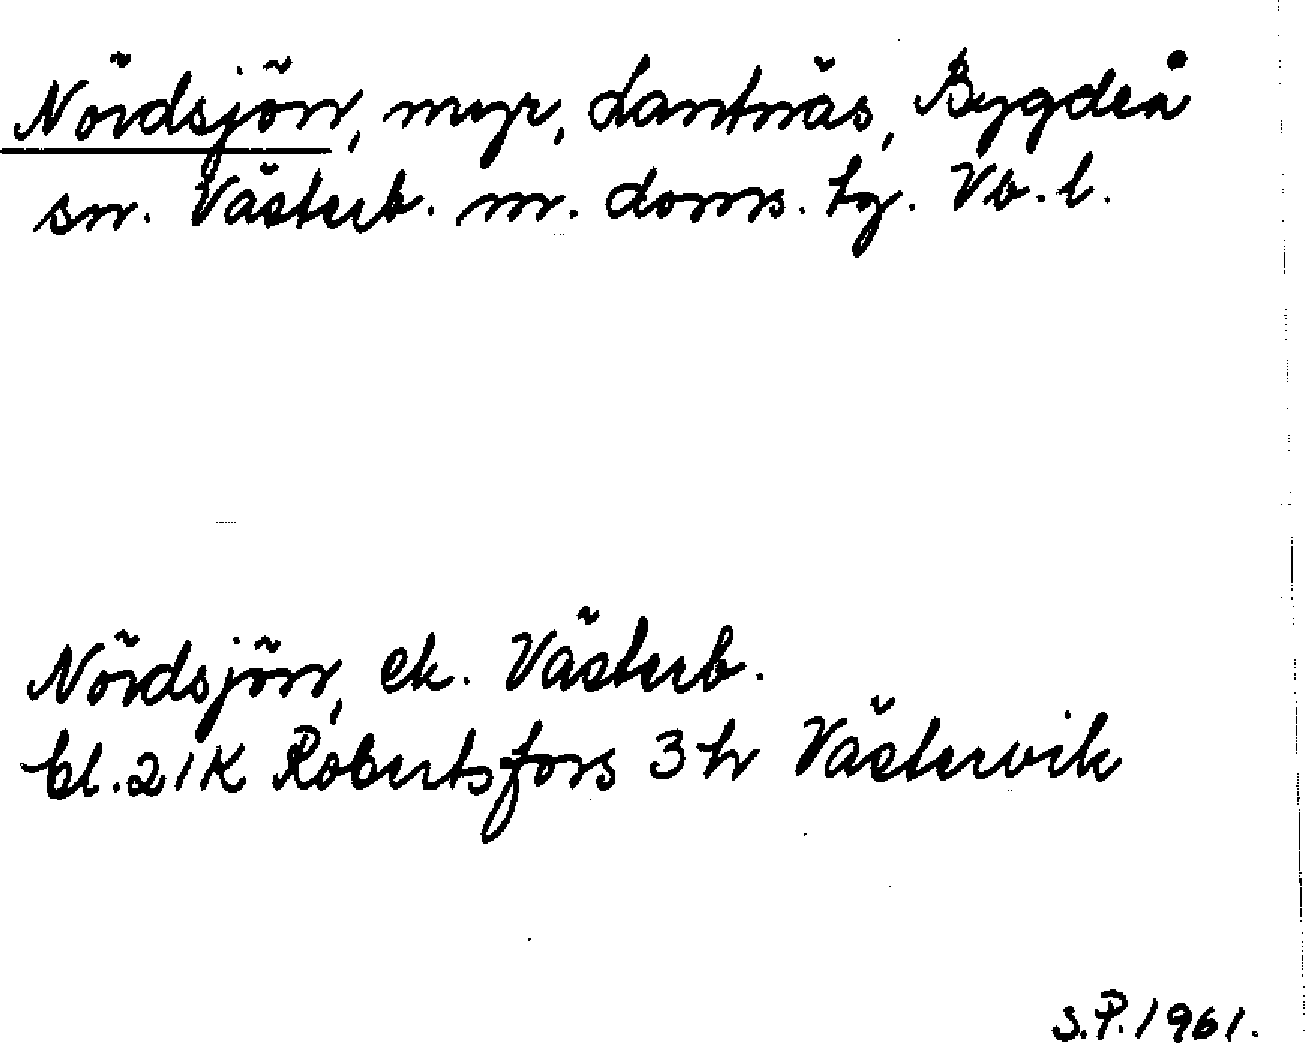 Nördsjön, myr, Lantnäs, Bygdeå
sn. Västerb. m. doms. tg. Vb. l.
Nördsjön, ek. Västerb.
bl. 21K Robertsfors 3 h Västervik
S.P. 1961.